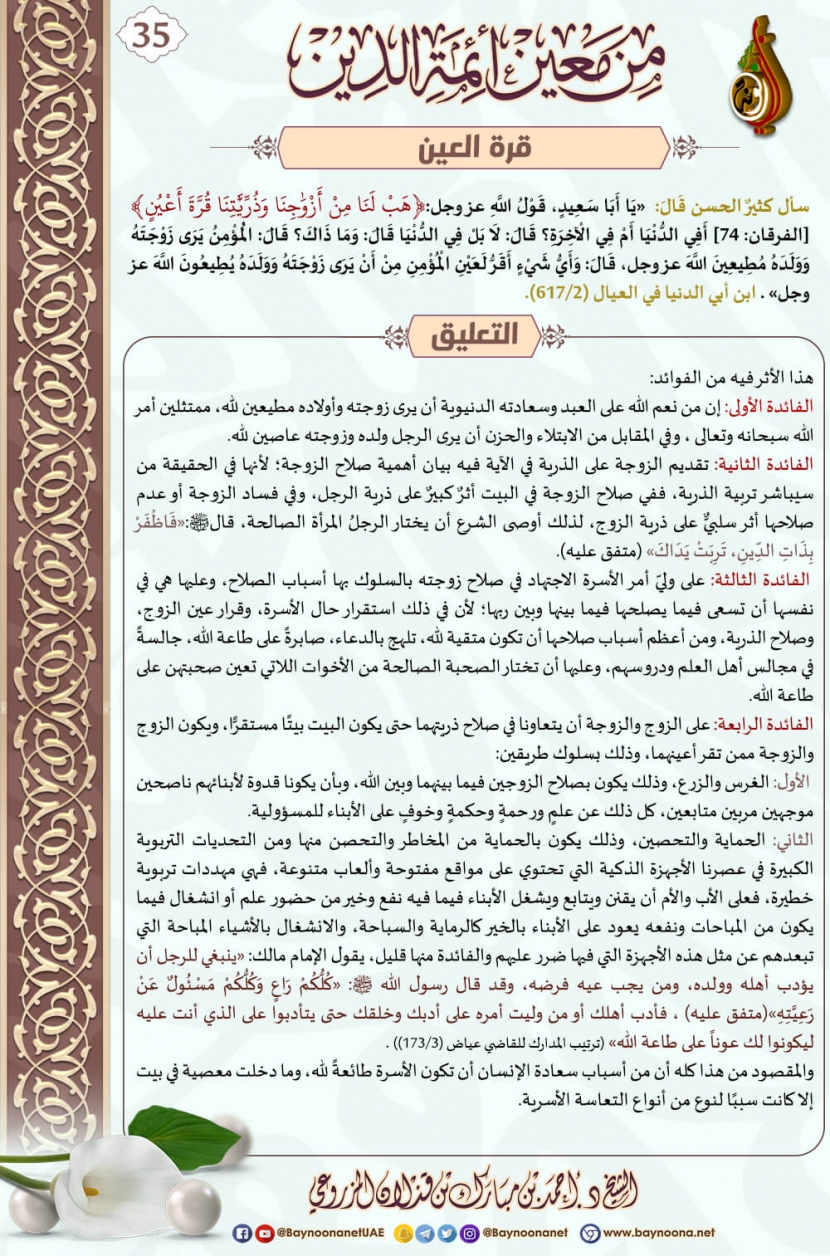 35
من معين أئمة الدين
قرة العين
سأل كثيرٌ الحسن قَالَ: «يَا أَبَا سَعِيدٍ، قَوْلُ اللَّهِ عز وجل:﴿هَبْ لَنَا مِنْ أَزْوَٰجِنَا وَذُرِّيَّٰتِنَا قُرَّةَ أَعْيُنٍ﴾
[الفرقان: 74] أَفِي الدُّنْيَا أَمْ فِي الْآخِرَةِ؟ قَالَ: لَا بَلْ فِي الدُّنْيَا قَالَ: وَمَا ذَاكَ؟ قَالَ: الْمُؤْمِنُ يَرَى زَوْجَتَهُ
وَوَلَدَهُ مُطِيعِينَ اللَّهَ عز وجل، قَالَ: وَأَيُّ شَيْءٍ أَقَرُّ لَعَيْنِ الْمُؤْمِنِ مِنْ أَنْ يَرَى زَوْجَتَهُ وَوَلَدَهُ يُطِيعُونَ اللَّهَ عز
وجل» . ابن أبي الدنيا في العيال (617/2).
التعليق
هذا الأثر فيه من الفوائد:
الفائدة الأولى: إن من نعم الله على العبد وسعادته الدنيوية أن يرى زوجته وأولاده مطيعين لله، ممتثلين أمر
الله سبحانه وتعالى ، وفي المقابل من الابتلاء والحزن أن يرى الرجل ولده وزوجته عاصين لله.
الفائدة الثانية: تقديم الزوجة على الذرية في الآية فيه بيان أهمية صلاح الزوجة؛ لأنها في الحقيقة من
سيباشر تربية الذرية، ففي صلاح الزوجة في البيت أثرٌ كبيرٌ على ذرية الرجل، وفي فساد الزوجة أو عدم
صلاحها أثر سلبيٌّ على ذرية الزوج، لذلك أوصى الشرع أن يختار الرجلُ المرأة الصالحة، قالﷺ:«فَاظْفَرْ
بِذَاتِ الدِّينِ، تَرِبَتْ يَدَاكَ» (متفق عليه).
الفائدة الثالثة: على وليّ أمر الأسرة الاجتهاد في صلاح زوجته بالسلوك بها أسباب الصلاح، وعليها هي في
نفسها أن تسعى فيما يصلحها فيما بينها وبين ربها؛ لأن في ذلك استقرار حال الأسرة، وقرار عين الزوج،
وصلاح الذرية، ومن أعظم أسباب صلاحها أن تكون متقية لله، تلهج بالدعاء، صابرةً على طاعة الله، جالسةً
في مجالس أهل العلم ودروسهم، وعليها أن تختار الصحبة الصالحة من الأخوات اللاتي تعين صحبتهن على
طاعة الله.
الفائدة الرابعة: على الزوج والزوجة أن يتعاونا في صلاح ذريتهما حتى يكون البيت بيتًا مستقرًا، ويكون الزوج
والزوجة ممن تقر أعينهما، وذلك بسلوك طريقين:
الأول: الغرس والزرع، وذلك يكون بصلاح الزوجين فيما بينهما وبين الله، وبأن يكونا قدوة لأبنائهم ناصحين
موجهين مربين متابعين، كل ذلك عن علمٍ ورحمةٍ وحكمةٍ وخوفٍ على الأبناء للمسؤولية.
الثاني: الحماية والتحصين، وذلك يكون بالحماية من المخاطر والتحصن منها ومن التحديات التربوية
الكبيرة في عصرنا الأجهزة الذكية التي تحتوي على مواقع مفتوحة وألعاب متنوعة، فهي مهددات تربوية
خطيرة، فعلى الأب والأم أن يقنن ويتابع ويشغل الأبناء فيما فيه نفع وخير من حضور علم أو انشغال فيما
يكون من المباحات ونفعه يعود على الأبناء بالخير كالرماية والسباحة، والانشغال بالأشياء المباحة التي
تبعدهم عن مثل هذه الأجهزة التي فيها ضرر عليهم والفائدة منها قليل، يقول الإمام مالك: «ينبغي للرجل أن
يؤدب أهله وولده، ومن يجب عيه فرضه، وقد قال رسول الله ﷺ: «كُلُّكُمْ رَاعٍ وَكُلُّكُمْ مَسْئُولٌ عَنْ
رَعِيَّتِهِ»(متفق عليه) ، فأدب أهلك أو من وليت أمره على أدبك وخلقك حتى يتأدبوا على الذي أنت عليه
ليكونوا لك عوناً على طاعة الله» (ترتيب المدارك للقاضي عياض (173/3)) .
والمقصود من هذا كله أن من أسباب سعادة الإنسان أن تكون الأسرة طائعةً لله، وما دخلت معصية في بيت
إلا كانت سببًا لنوع من أنواع التعاسة الأسرية.
الشيخ د. أحمد بن مبارك بن قذلان المزروعي
@BaynoonanetUAE @Baynoonanet www.baynoona.net